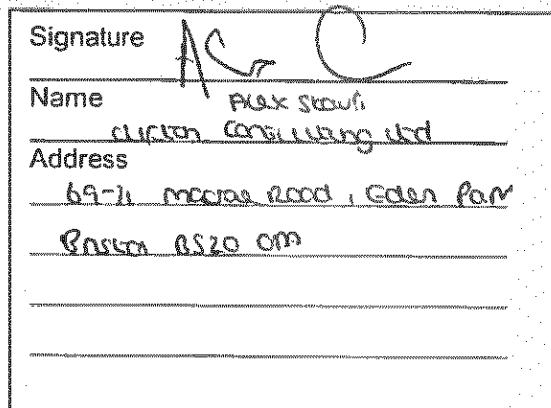 Signature
Name Alex
Clifton Consulting Ltd
Address
69-71 Macrae Road, Eden Par
Bristol BS20 0